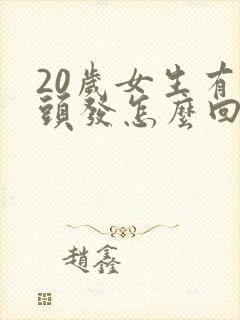 20歲女生有
頭發怎麼回
趙鑫